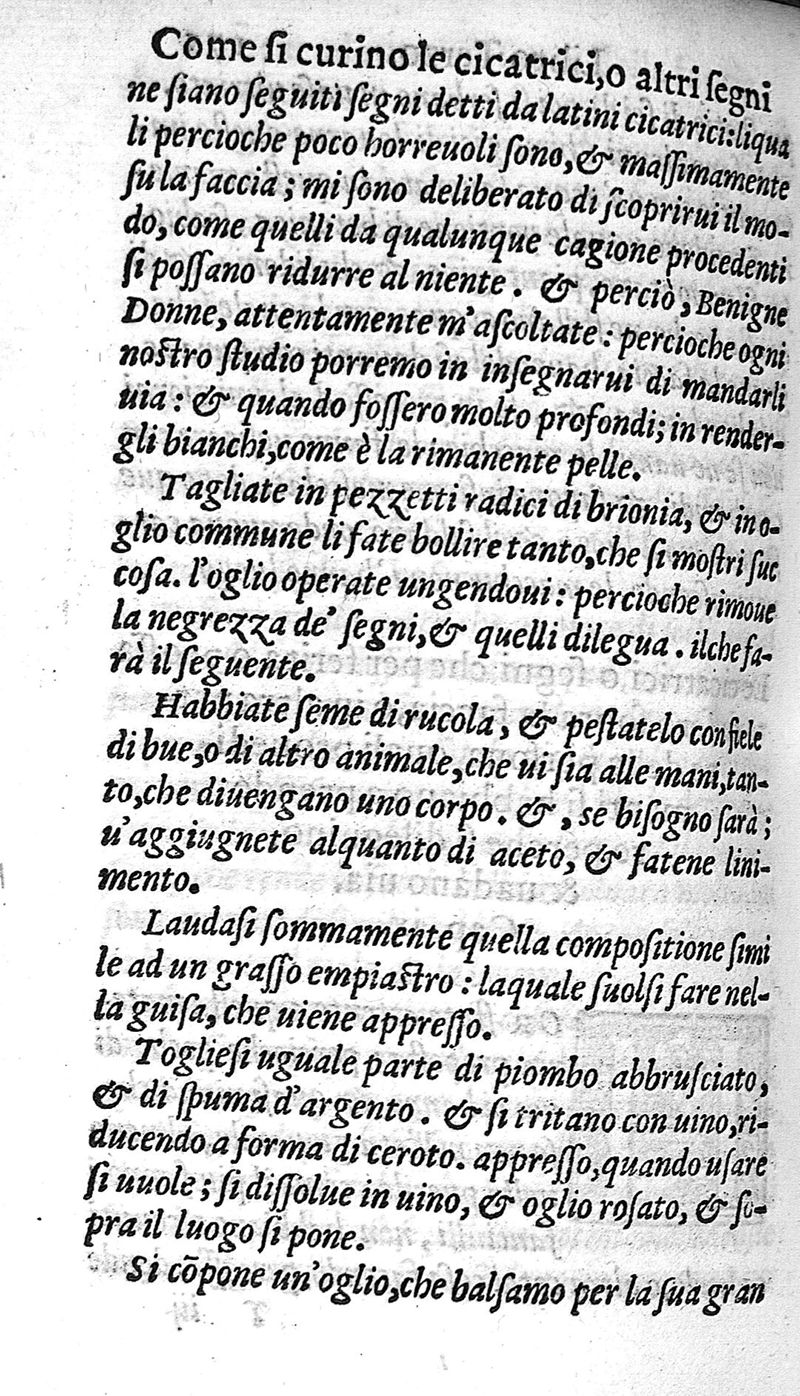 Come ſi curino le cicatrici, o altri ſegni
ne ſiano ſeguiti ſegni detti da latini cicatrici: liqua
li percioche poco horreuoli ſono, & maſſimamente
ſu la faccia; mi ſono deliberato di ſcoprirui il mo-
do, come quelli da qualunque cagione procedenti
ſi poſſano ridurre al niente. & perciò, Benigne
Donne, attentamente m'aſcoltate: percioche ogni
noſtro ſtudio porremo in inſegnarui di mandarli
uia: & quando foſſero molto profondi; in render-
gli bianchi, come è la rimanente pelle.
Tagliate in pezzetti radici di brionia, & in o-
glio commune li fate bollire tanto, che ſi moſtri ſuc
coſa. l'oglio operate ungendoui: percioche rimoue
la negrezza de' ſegni, & quelli dilegua. ilche fa-
rà il ſeguente.
Habbiate ſeme di rucola, & peſtatelo con fiele
di bue, o di altro animale, che ui ſia alle mani, tan-
to, che diuengano uno corpo. &, se biſogno ſarà;
u'aggiugnete alquanto di aceto, & fatene lini-
mento.
Laudaſi ſommamente quella compoſitione ſimi
le ad un graſſo empiaſtro: laquale ſuolſi fare nel-
la guiſa, che uiene appreſſo.
Taglieſi uguale parte di piombo abbruſciato,
& di ſpuma d'argento. & ſi tritano con uino, ri-
ducendo a forma di ceroto. appreſſo, quando uſare
ſi uuole; ſi diſſolue in uino, & oglio roſato, & ſo-
pra il luogo ſi pone.
Si cõpone un'oglio, che balſamo per la ſua gran